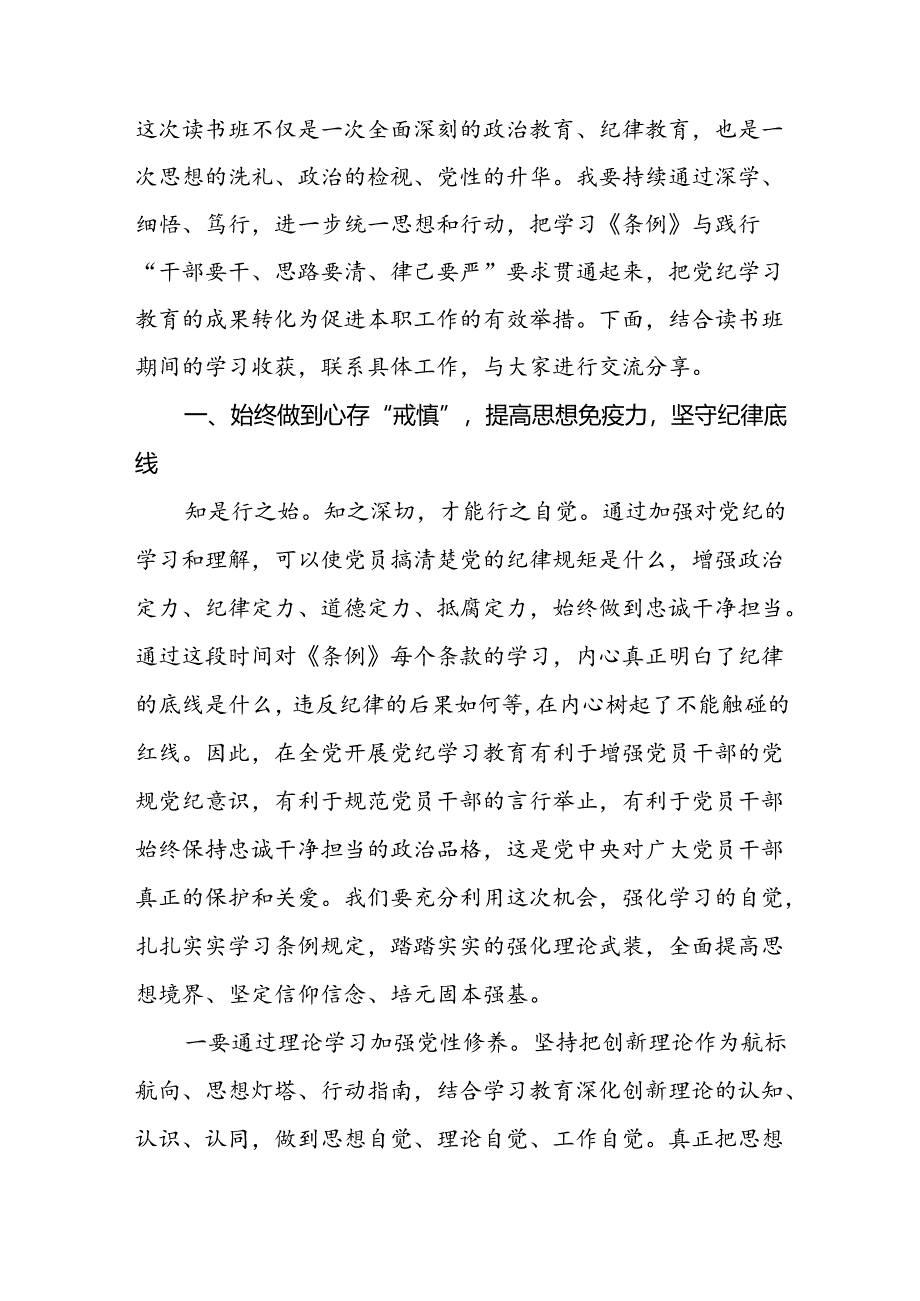 这次读书班不仅是一次全面深刻的政治教育、纪律教育，也是一
次思想的洗礼、政治的检视、党性的升华。我要持续通过深学、
细悟、笃行，进一步统一思想和行动，把学习《条例》与践行
“干部要干、思路要清、律己要严”要求贯通起来，把党纪学习
教育的成果转化为促进本职工作的有效举措。下面，结合读书班
期间的学习收获，联系具体工作，与大家进行交流分享。
一、始终做到心存“戒慎”，提高思想免疫力，坚守纪律底
线
知是行之始。知之深切，才能行之自觉。通过加强对党纪的
学习和理解，可以使党员搞清楚党的纪律规矩是什么，增强政治
定力、纪律定力、道德定力、抵腐定力，始终做到忠诚干净担当。
通过这段时间对《条例》每个条款的学习，内心真正明白了纪律
的底线是什么，违反纪律的后果如何等，在内心树起了不能触碰的
红线。因此，在全党开展党纪学习教育有利于增强党员干部的党
规党纪意识，有利于规范党员干部的言行举止，有利于党员干部
始终保持忠诚干净担当的政治品格，这是党中央对广大党员干部
真正的保护和关爱。我们要充分利用这次机会，强化学习的自觉，
扎扎实实学习条例规定，踏踏实实的强化理论武装，全面提高思
想境界、坚定信仰信念、培元固本强基。
一要通过理论学习加强党性修养。坚持把创新理论作为航标
航向、思想灯塔、行动指南，结合学习教育深化创新理论的认知、
认识、认同，做到思想自觉、理论自觉、工作自觉。真正把思想